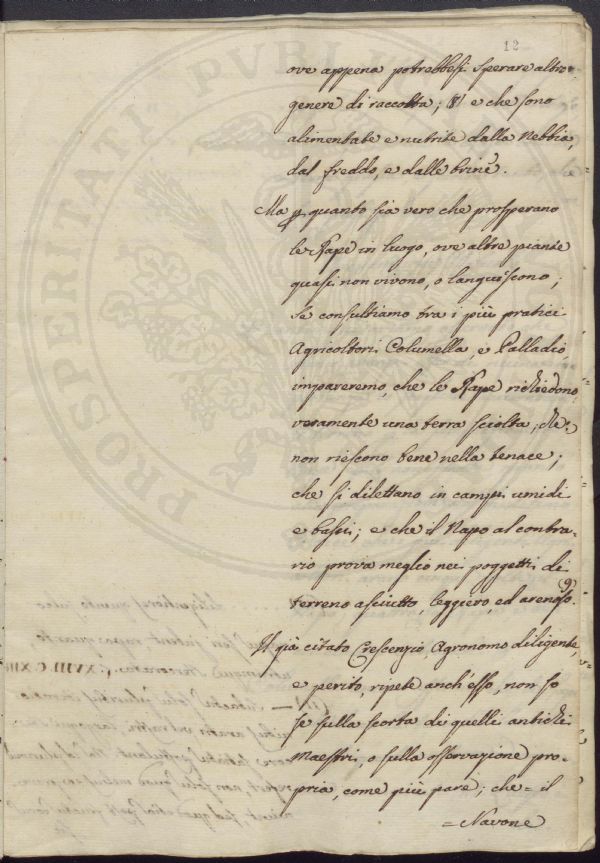 12
ove appena potrebbesi sperare altro
genere di raccolta; (8) e che sono
alimentate e nutrite dalla Nebbia,
dal freddo, e dalle brine.
Ma p quanto sia vero che prosperano
le Rape in luogo, ove altre piante
quasi non vivono, o languiscono;
se consultiamo tra i più pratici
Agricoltori Columella, e Palladio,
impareremo, che le Rape richiedono
veramente una terra sciolta, che
non riescono bene nella tenace;
che si dilettano in campi umidi
e bassi; e che il Napo al contra-
rio prova meglio nei poggetti di
terreno asciutto, leggiero, ed arenoso. (9)
Il già citato Crescenzio, Agronomo diligente,
e perito, ripete anch'esso, non so
se sulla scorta di quelli antichi
Maestri, o sulla osservazione pro-
pria, come più pare; che = il
= Navone
PROSPERITATI PVBLICAE